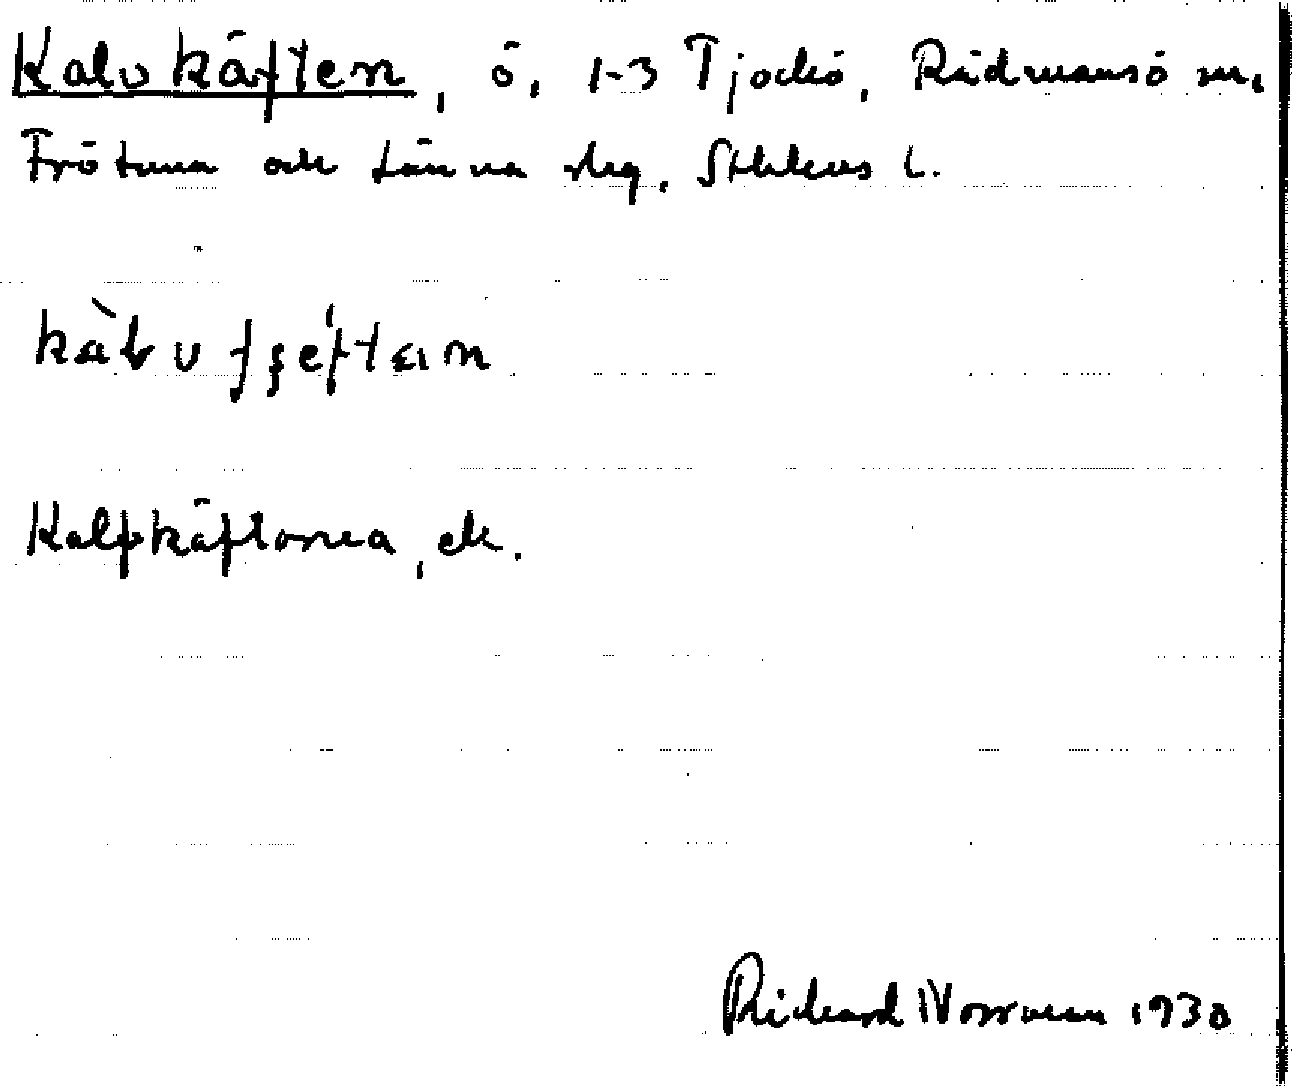 Kalvkäften, ö, 1-3 Tjockö, Rådmansö sn,
Frötuna och Länna slg, Sthlms l.
Kalfkäftarna, ek.
Rickard Norrman 1930